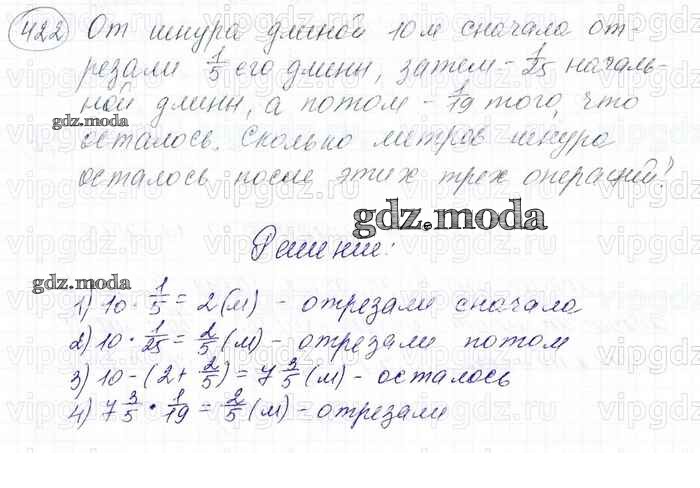 422 От шнура длиной 10 м сначала от-
резали 1/5 его длины, затем - 1/25 началь-
ной длины, а потом - 1/19 того, что
осталось. Сколько метров шнура
осталось после этих трех операций?
gdz.moda
gdz.moda
Решение:
gdz.moda
1) 10 · 1/5 = 2 (м) - отрезали сначала
2) 10 · 1/25 = 2/5 (м) - отрезали потом
3) 10 - (2 + 2/5) = 7 3/5 (м) - осталось
4) 7 3/5 · 1/19 = 2/5 (м) - отрезали